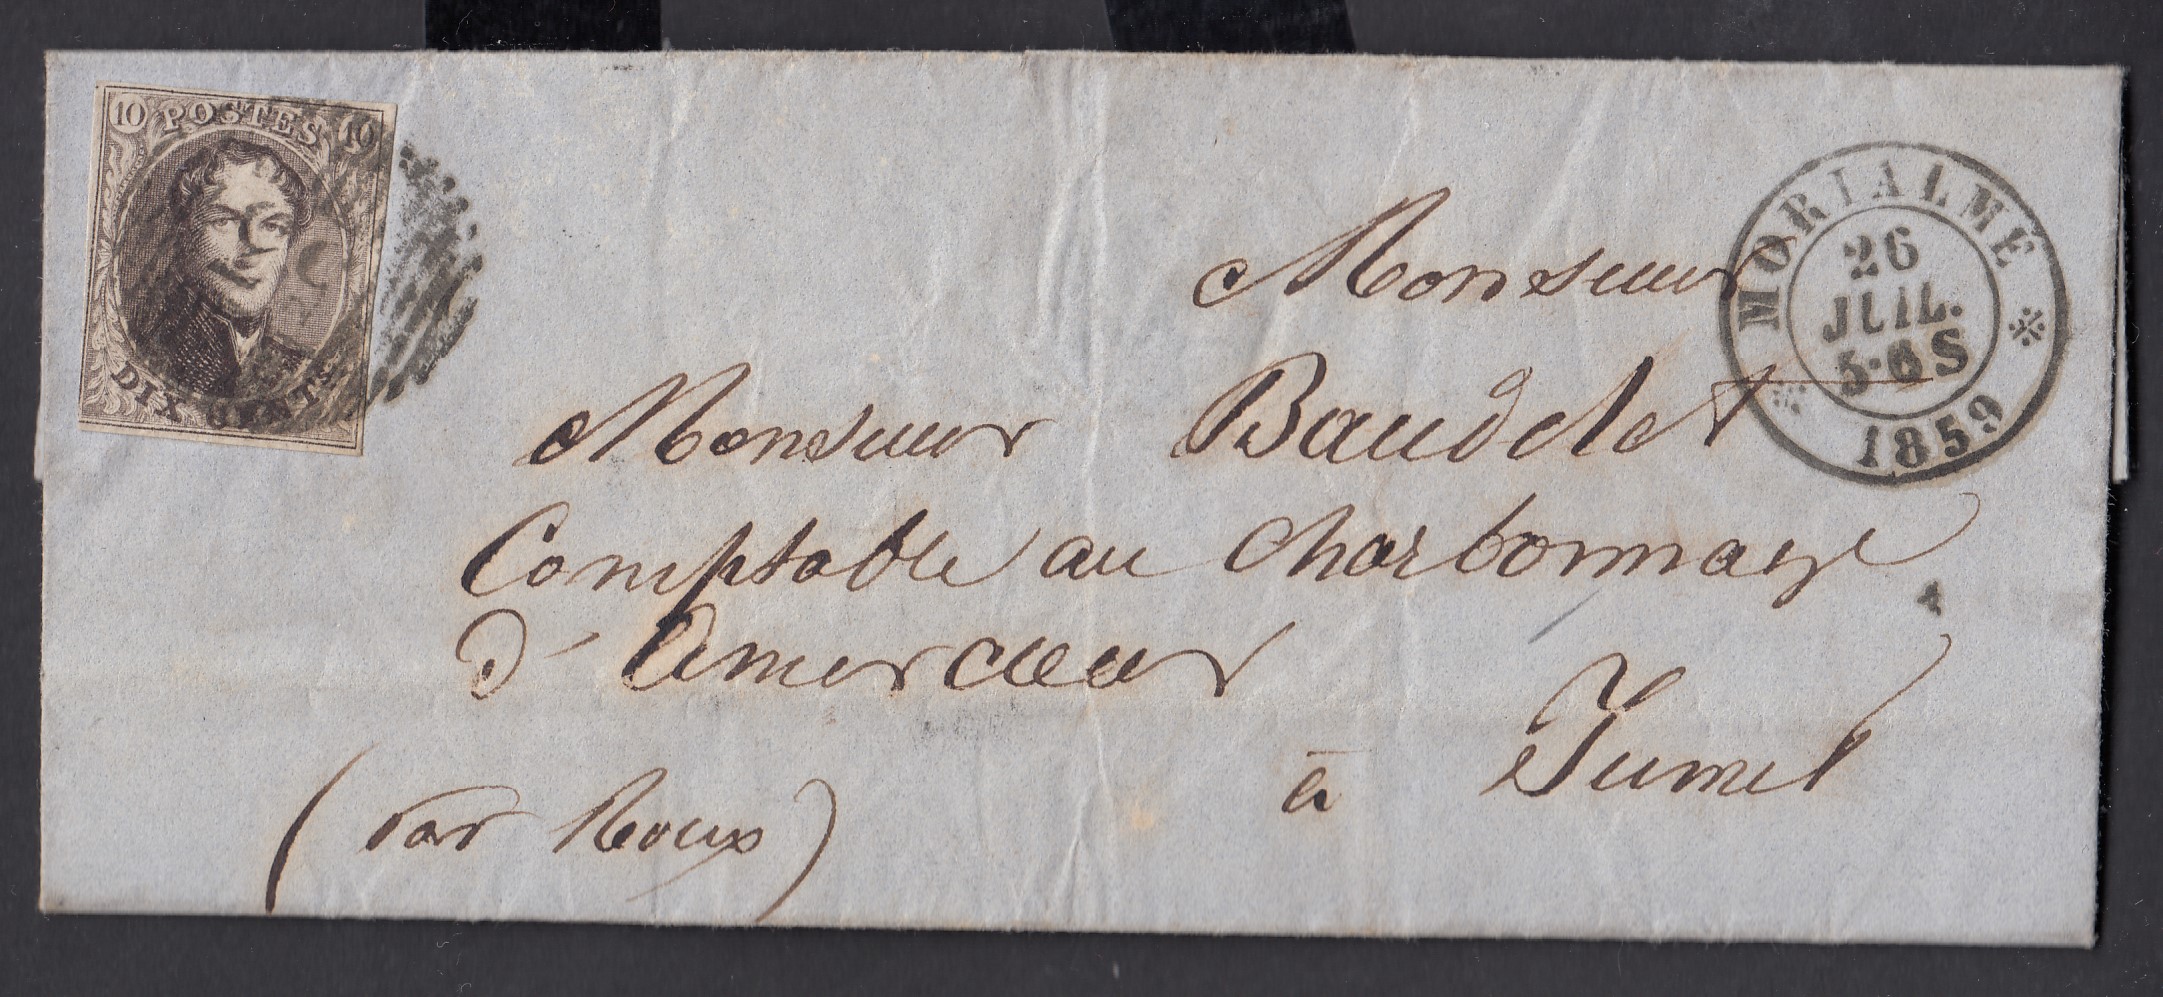 10 POSTES 10
DIX CENTS
MORIALMÉ
26
JUIL.
5-6S
1859
Monsieur
Monsieur Baudelet
Comptable au Charbonnage
d'Amercoeur
à Jumet
(par Roux)